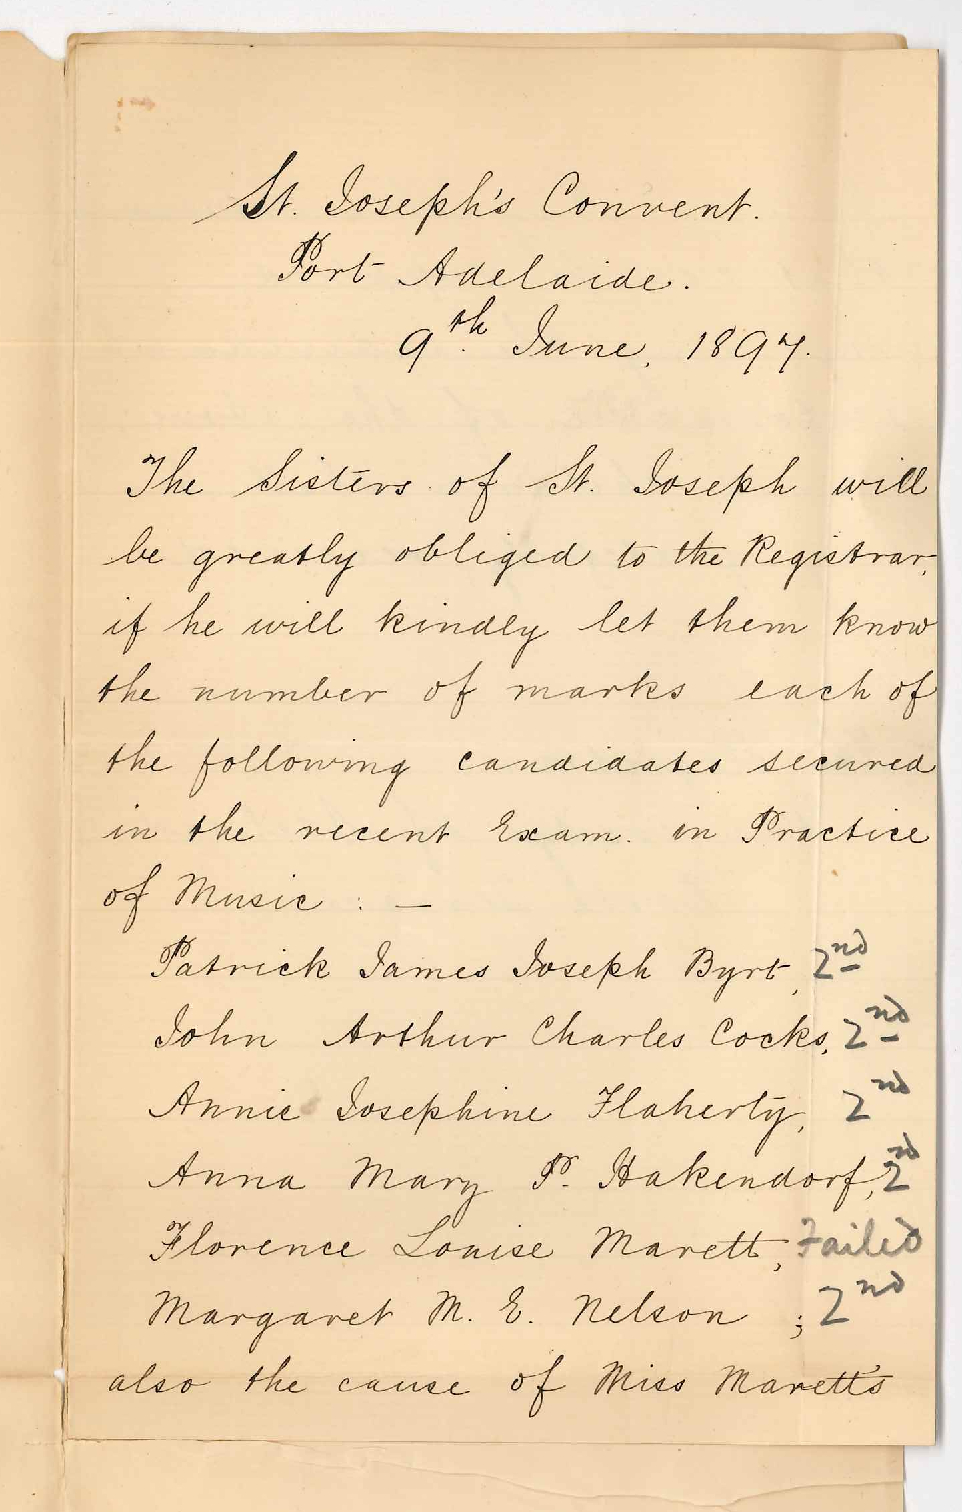 St. Joseph's Convent.
Port Adelaide.
9th June, 1897.
The Sisters of St. Joseph will
be greatly obliged to the Registrar,
if he will kindly let them know
the number of marks each of
the following candidates secured
in the recent Exam. in Practice
of Music : —
Patrick James Joseph Byrt, 2nd
John Arthur Charles Cocks, 2nd
Annie Josephine Flaherty, 2nd
Anna Mary P. Hakendorf, 2nd
Florence Louise Marett, Failed
Margaret M. E. Nelson ; 2nd
also the cause of Miss Marett's